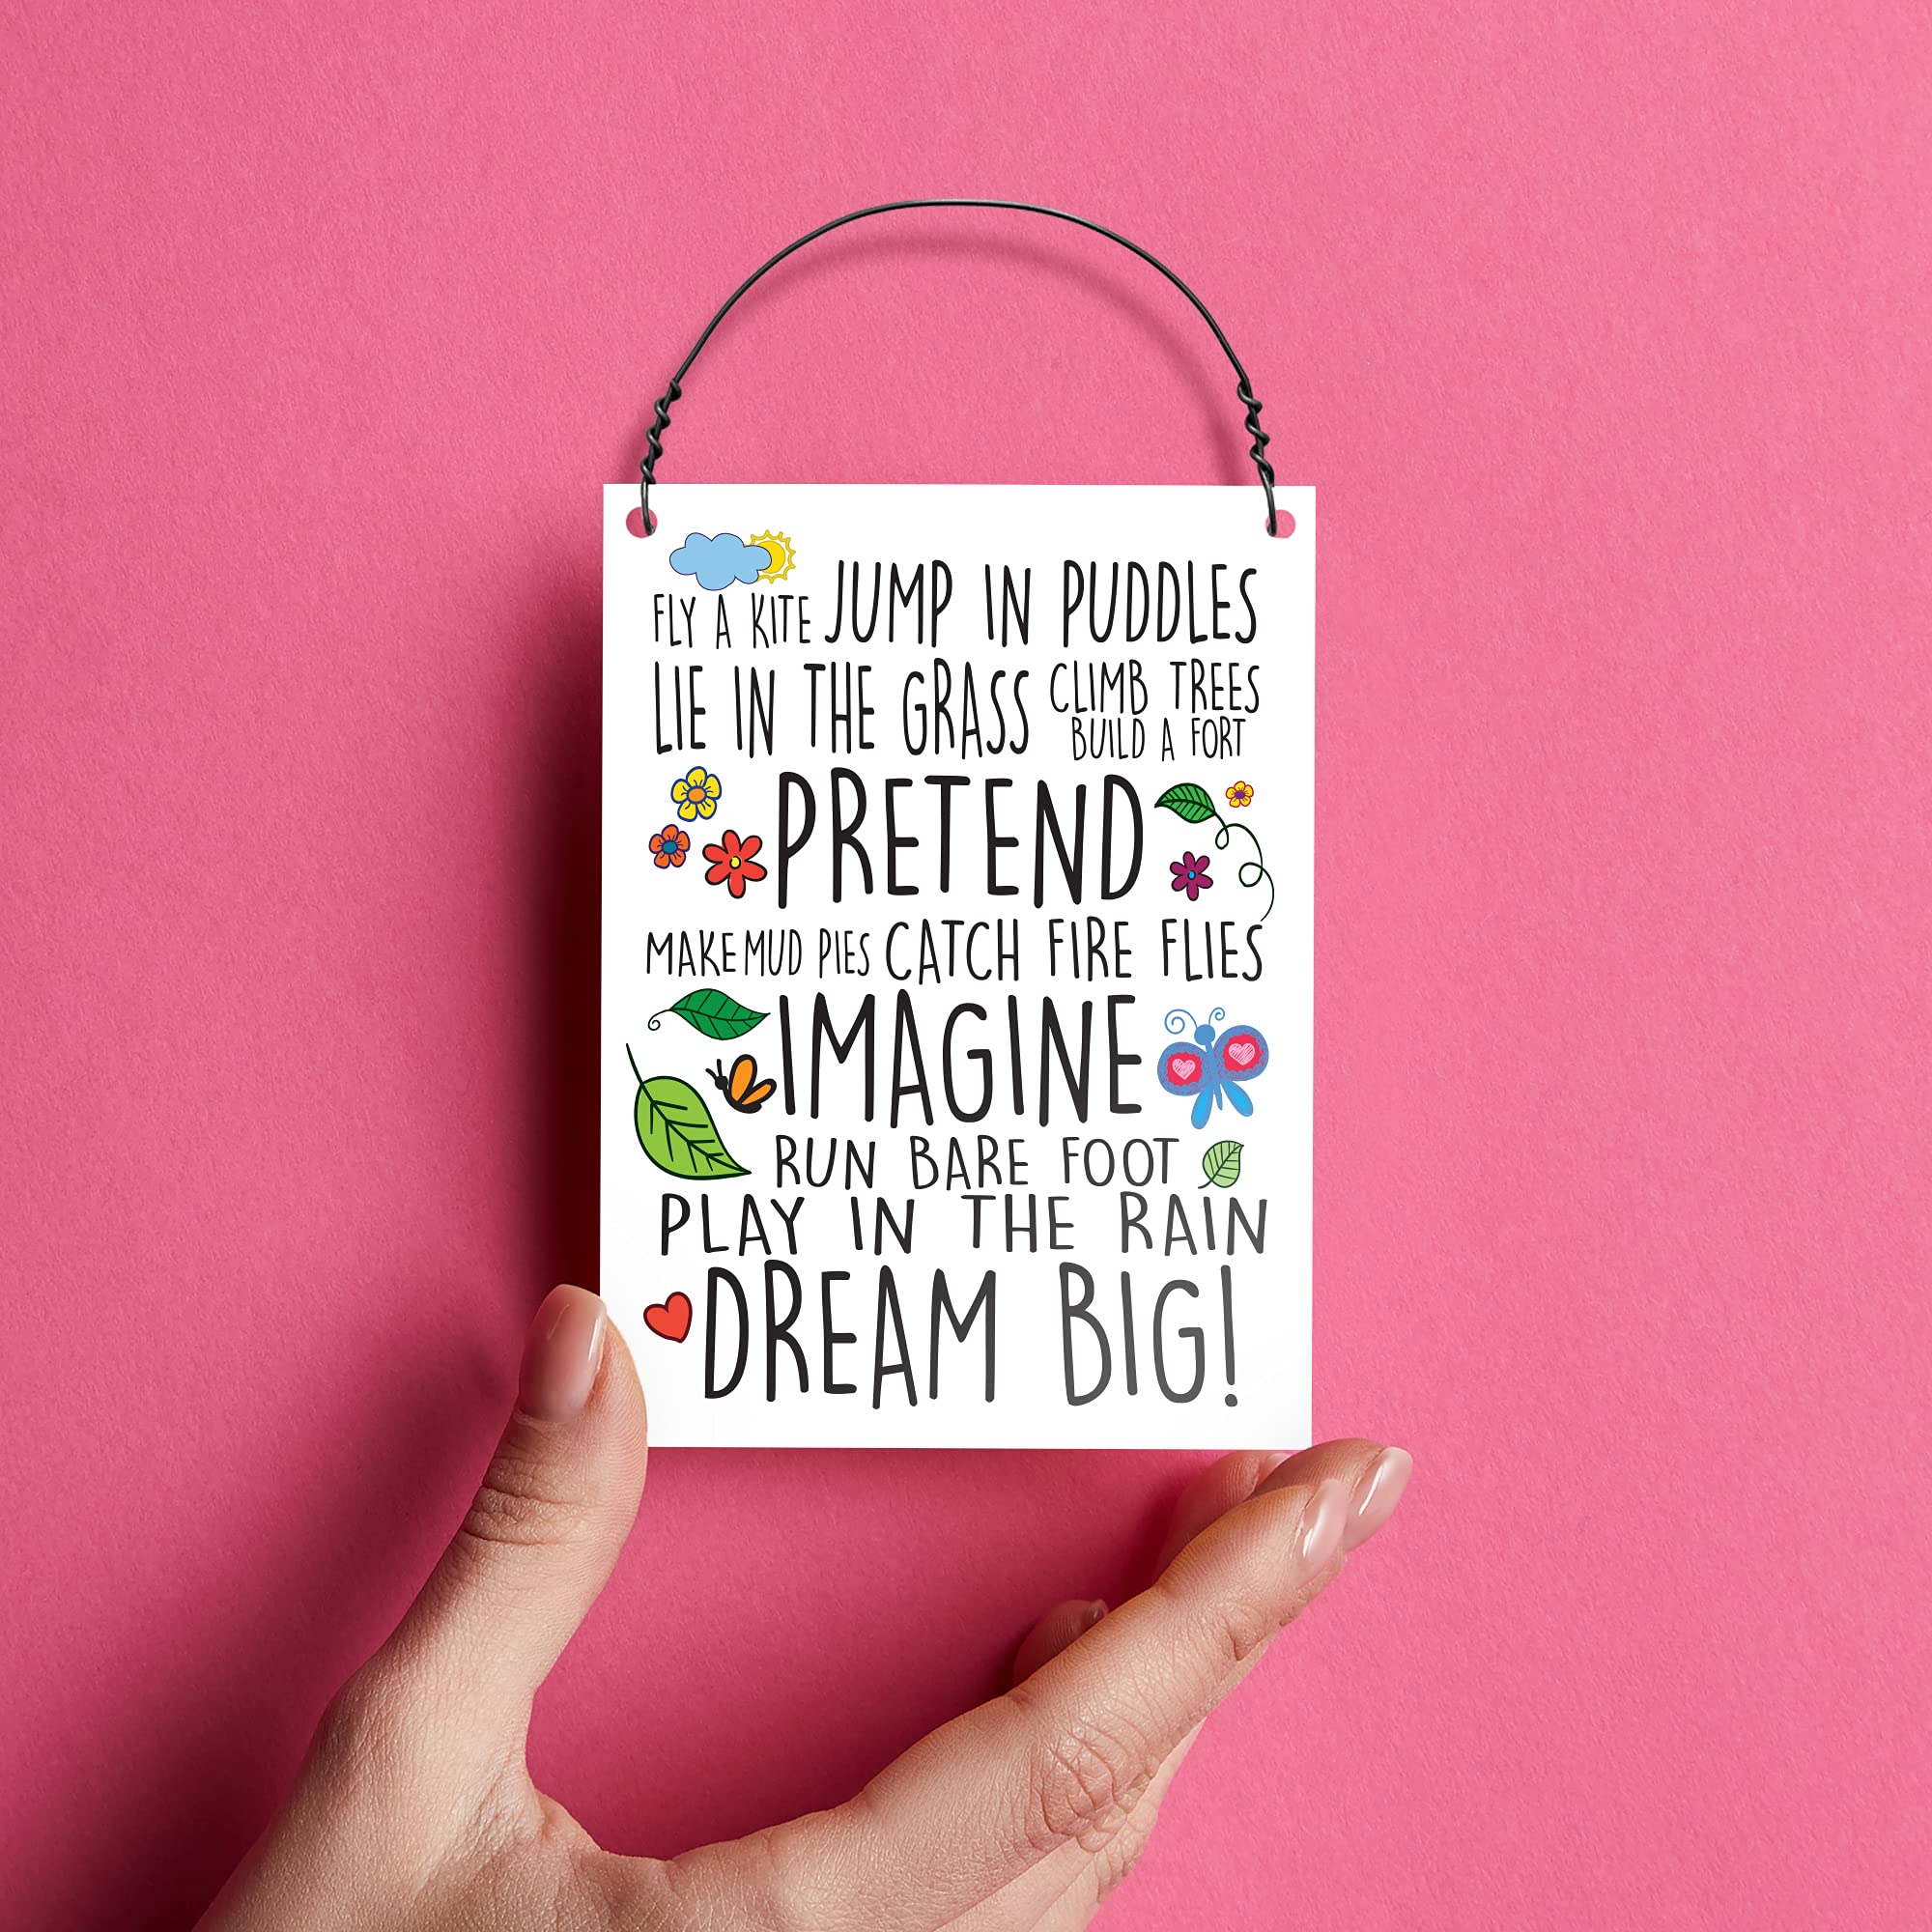 FLY A KITE JUMP IN PUDDLES
LIE IN THE GRASS CLIMB TREES
BUILD A FORT
PRETEND
MAKE MUD PIES CATCH FIRE FLIES
IMAGINE
RUN BARE FOOT
PLAY IN THE RAIN
DREAM BIG!